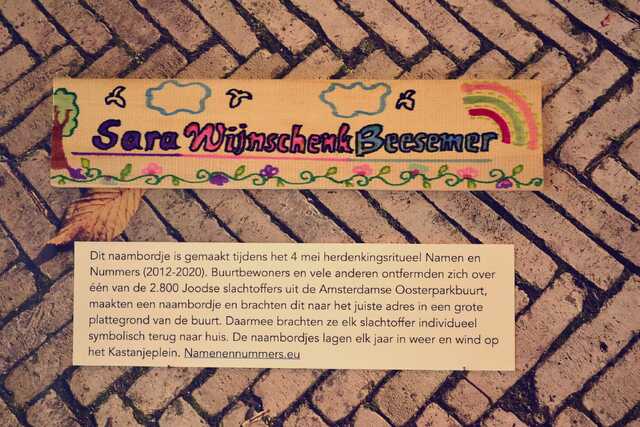 Sara Wijnschenk Beesemer
Dit naambordje is gemaakt tijdens het 4 mei herdenkingsritueel Namen en
Nummers (2012-2020). Buurtbewoners en vele anderen ontfermden zich over
één van de 2.800 Joodse slachtoffers uit de Amsterdamse Oosterparkbuurt,
maakten een naambordje en brachten dit naar het juiste adres in een grote
plattegrond van de buurt. Daarmee brachten ze elk slachtoffer individueel
symbolisch terug naar huis. De naambordjes lagen elk jaar in weer en wind op
het Kastanjeplein. Namenennummers.eu